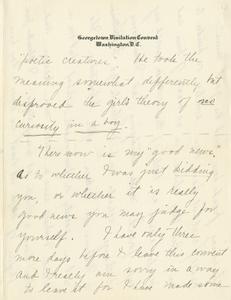 Georgetown Visitation Convent
Washington, D.C.
"poetic creatures". He took the
meaning somewhat differently but
disproved the girl's theory of no
curiosity in a boy.
There now is my "good news,"
as to whether I was just kidding
you, or whether it is really
good news you may judge for
yourself. I have only three
more days before I leave this convent
and I really am sorry in a way
to leave it for I have made some